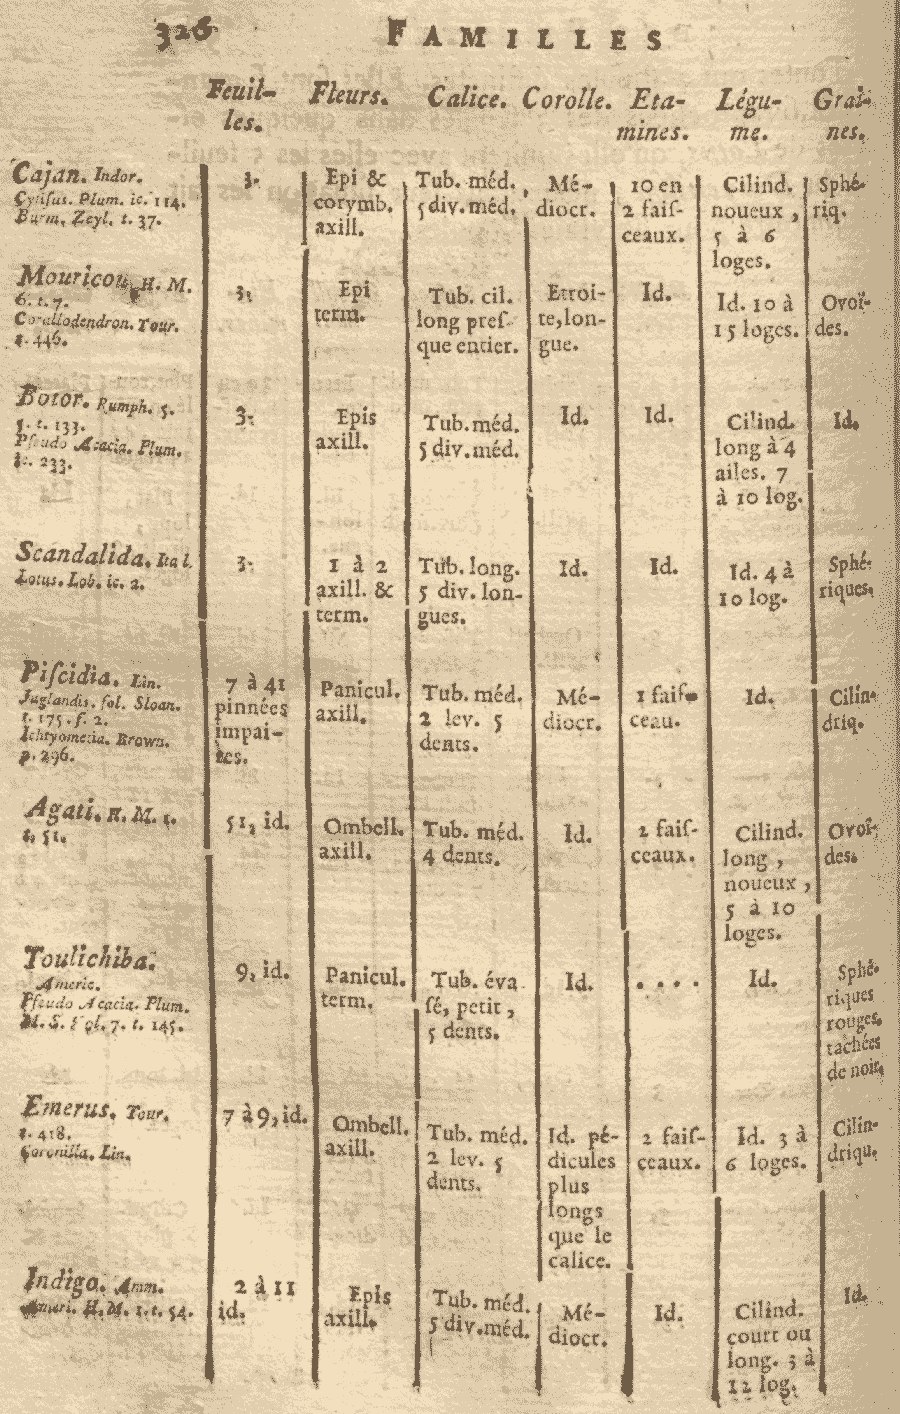 326 FAMILLES
Feuil-
les.
Fleurs.
Calice.
Corolle.
Eta-
mines.
Légu-
me.
Grai-
nes.
Cajan. Indor.
Cytisus. Plum. ic. 114.
Burm. Zeyl. t. 37.
3.
Epi &
corymb.
axill.
Tub. méd.
5 div. méd.
Mé-
diocr.
10 en
2 faiſ-
ceaux.
Cilind.
noueux,
5 à 6
loges.
Sphé-
riq.
Mouricou H. M.
6. t. 7.
Corallodendron. Tour.
t. 446.
3.
Epi
term.
Tub. cil.
long preſ-
que entier.
Etroi-
te, lon-
gue.
Id.
Id. 10 à
15 loges.
Ovoï-
des.
Botor. Rumph. 5.
t. 133.
Pſeudo Acacia. Plum.
233.
3.
Epis
axill.
Tub. méd.
5 div. méd.
Id.
Id.
Cilind.
long à 4
ailes. 7
à 10 log.
Id.
Scandalida. Ital.
Lotus. Lob. ic. 2.
3.
1 à 2
axill. &
term.
Tub. long.
5 div. lon-
gues.
Id.
Id.
Id. 4 à
10 log.
Sphé-
riques.
Piſcidia. Lin.
Juglandis. fol. Sloan.
t. 175. f. 2.
Ichtyomethia. Brown.
p. 296.
7 à 41
pinnées
impai-
res.
Panicul.
axill.
Tub. méd.
2 lev. 5
dents.
Mé-
diocr.
1 faiſ-
ceau.
Id.
Cilin-
driq.
Agati. H. M. 1.
t. 51.
51, id.
Ombell.
axill.
Tub. méd.
4 dents.
Id.
2 faiſ-
ceaux.
Cilind.
long,
noueux,
5 à 10
loges.
Ovoï-
des.
Toulichiba.
Americ.
Pſeudo Acacia. Plum.
M. S. Vol. 7. t. 145.
9, id.
Panicul.
term.
Tub. éva
ſé, petit,
5 dents.
Id.
. . . .
Id.
Sphé-
riques
rouges,
tachées
de noir.
Emerus. Tour.
t. 418.
Coronilla. Lin.
7 à 9, id.
Ombell.
axill.
Tub. méd.
2 lev. 5
dents.
Id. pé-
dicules
plus
longs
que le
calice.
2 faiſ-
ceaux.
Id. 3 à
6 loges.
Cilin-
driqu.
Indigo. Amm.
Ameri. H. M. 1. t. 54.
2 à 11
id.
Epis
axill.
Tub. méd.
5 div. méd.
Mé-
diocr.
Id.
Cilind.
court ou
long. 3 à
12 log.
Id.